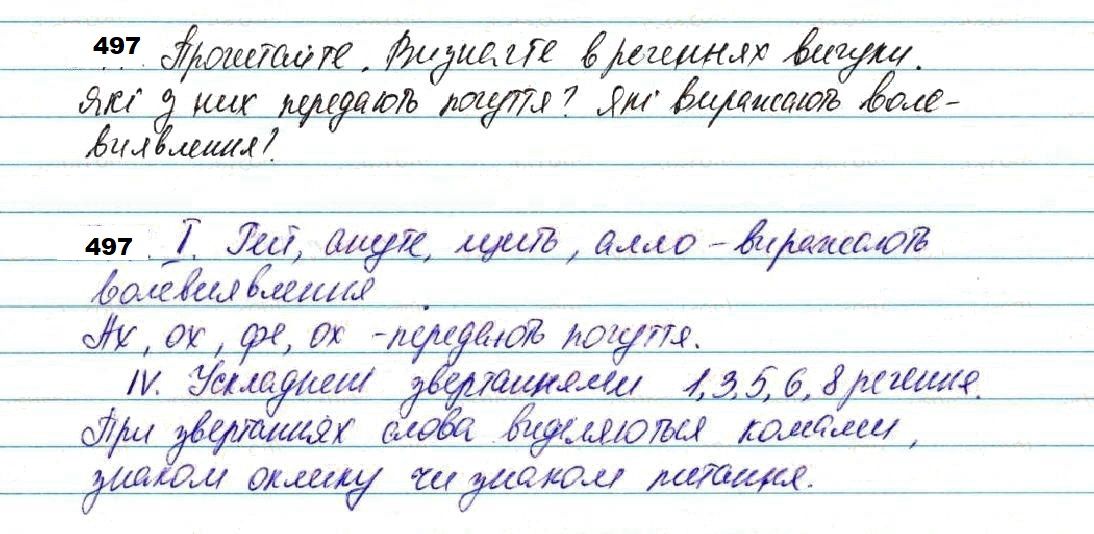 497 Прочитайте. Визначте в реченнях вигуки.
Які з них передають почуття? Які виражають воле-
виявлення?
497. I. Гей, ануте, цить, алло – виражають
волевиявлення
Ах, ох, фе, ох – передають почуття.
IV. Ускладнені звертаннями 1, 3, 5, 6, 8 речення.
При звертаннях слова виділяються комами,
знаком оклику чи знаком питання.